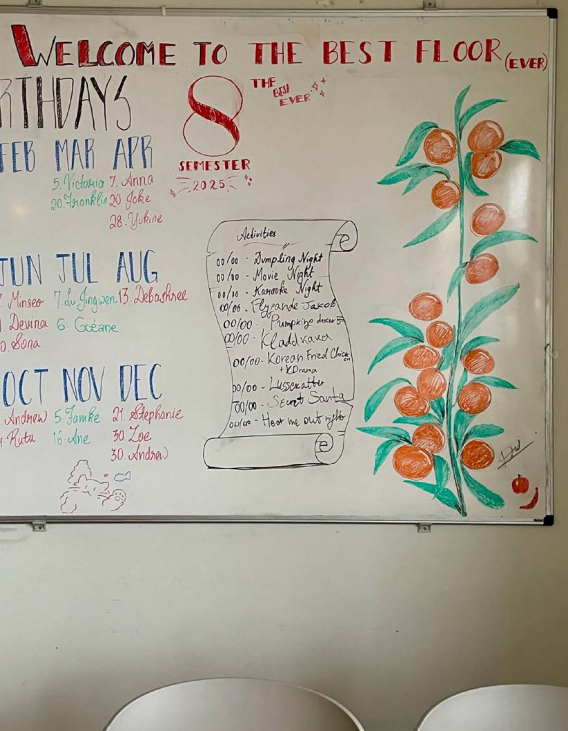 WELCOME TO THE BEST FLOOR (EVER)
RTHDAYS
8
THE BEST EVER
SEMESTER
2025
FEB MAR APR
5. Victoria 7. Anna
20. Franklin 20. Joke
28. Yukine
JUN JUL AUG
Minseo 7. Lu Jingwen 13. Debashree
Devina 6. Océane
0. Sona
OCT NOV DEC
Andrew 5. Famke 21. Stephanie
Ruta 16. Ane 30. Zoe
30. Andrew
Activities
00/00 - Dumpling Night
00/00 - Movie Night
00/00 - Karaoke Night
00/00 - Flygande Jacob
00/00 - Pumpkins
00/00 - Kladdkaka
00/00 - Korean Fried Chicken
+ KDrama
00/00 - Lussekatter
00/00 - Secret Santa
00/00 - Hear me out night